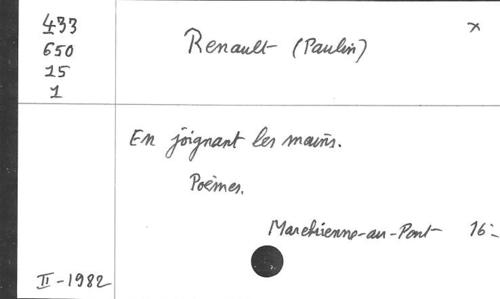 433
650
15
1
Renault (Paulin)
x
En joignant les mains.
Poèmes.
Marchienne-au-Pont 16:-
II-1982